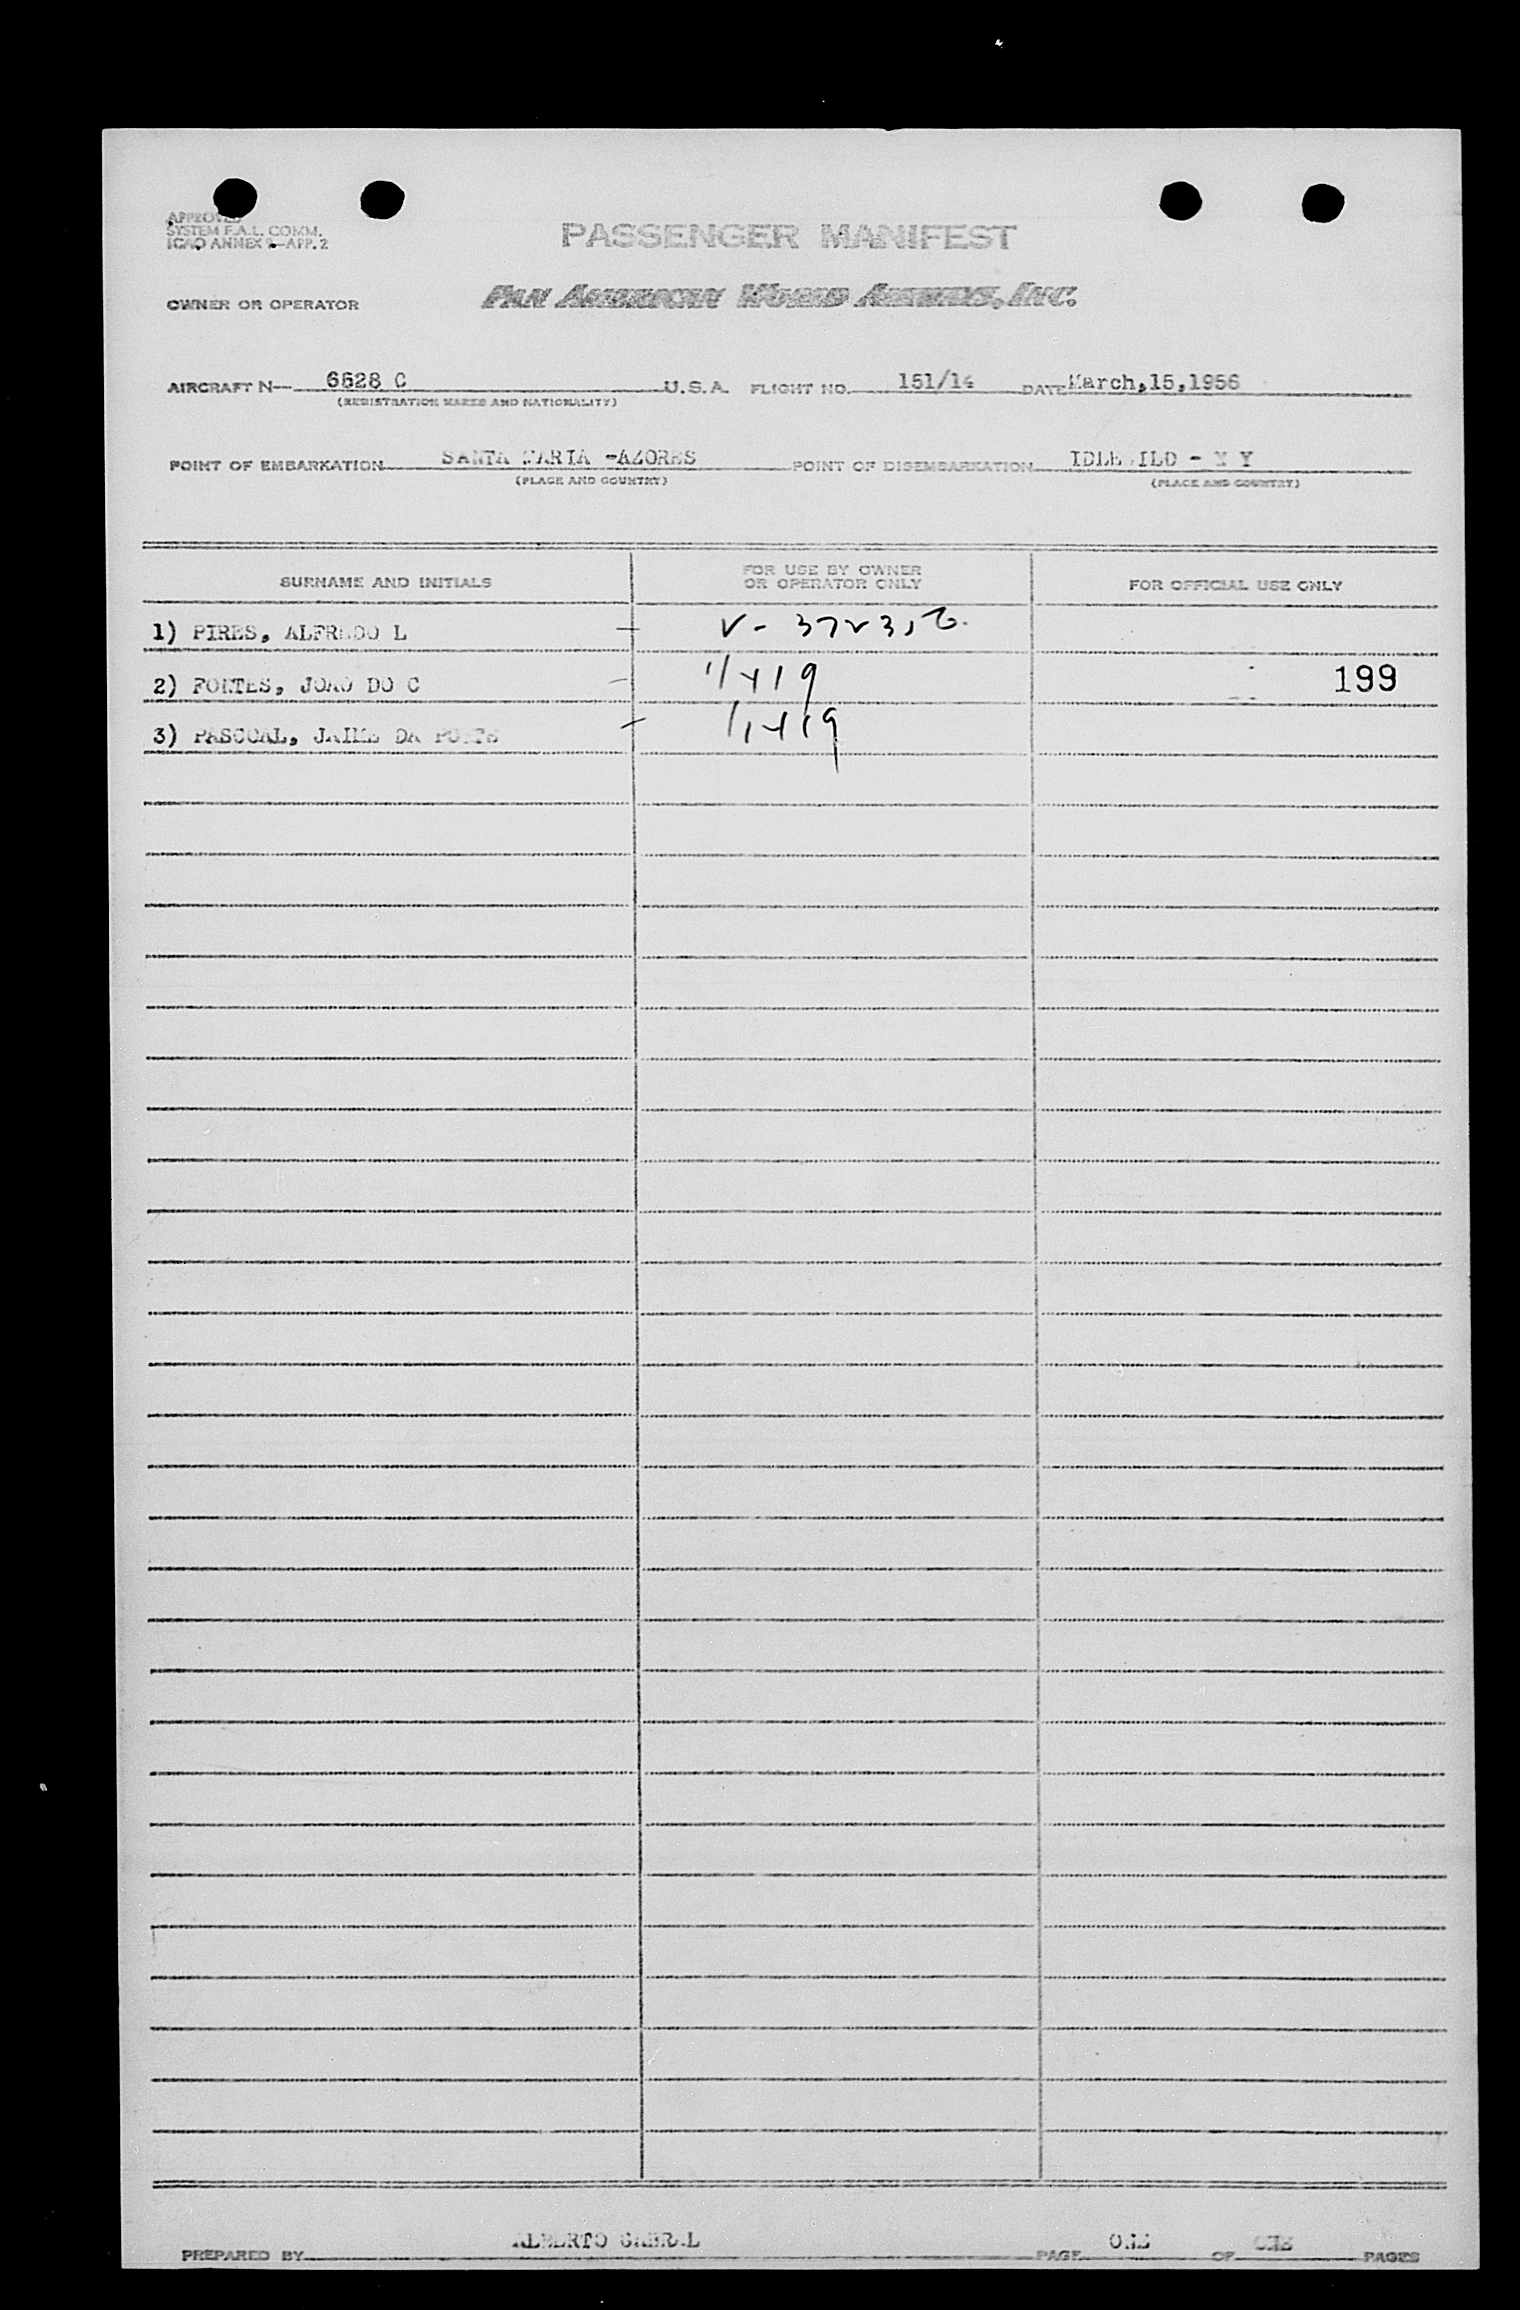 APPROVED
SYSTEM F.A.L. COMM.
ICAO ANNEX 9—APP. 2
PASSENGER MANIFEST
OWNER OR OPERATOR PAN AMERICAN WORLD AIRWAYS, INC.
AIRCRAFT N— 6528 C U.S.A. FLIGHT NO. 151/14 DATE March,15,1956
(REGISTRATION MARKS AND NATIONALITY)
POINT OF EMBARKATION SANTA MARIA -AZORES POINT OF DISEMBARKATION IDLEWILD - N Y
(PLACE AND COUNTRY) (PLACE AND COUNTRY)
SURNAME AND INITIALS FOR USE BY OWNER OR OPERATOR ONLY FOR OFFICIAL USE ONLY
1) PIRES, ALFREDO L
2) FONTES, JOAO DO C 199
3) PASCOAL, JAIME DA PONTE
PREPARED BY ALBERTO CABRAL PAGE ONE OF ONE PAGES